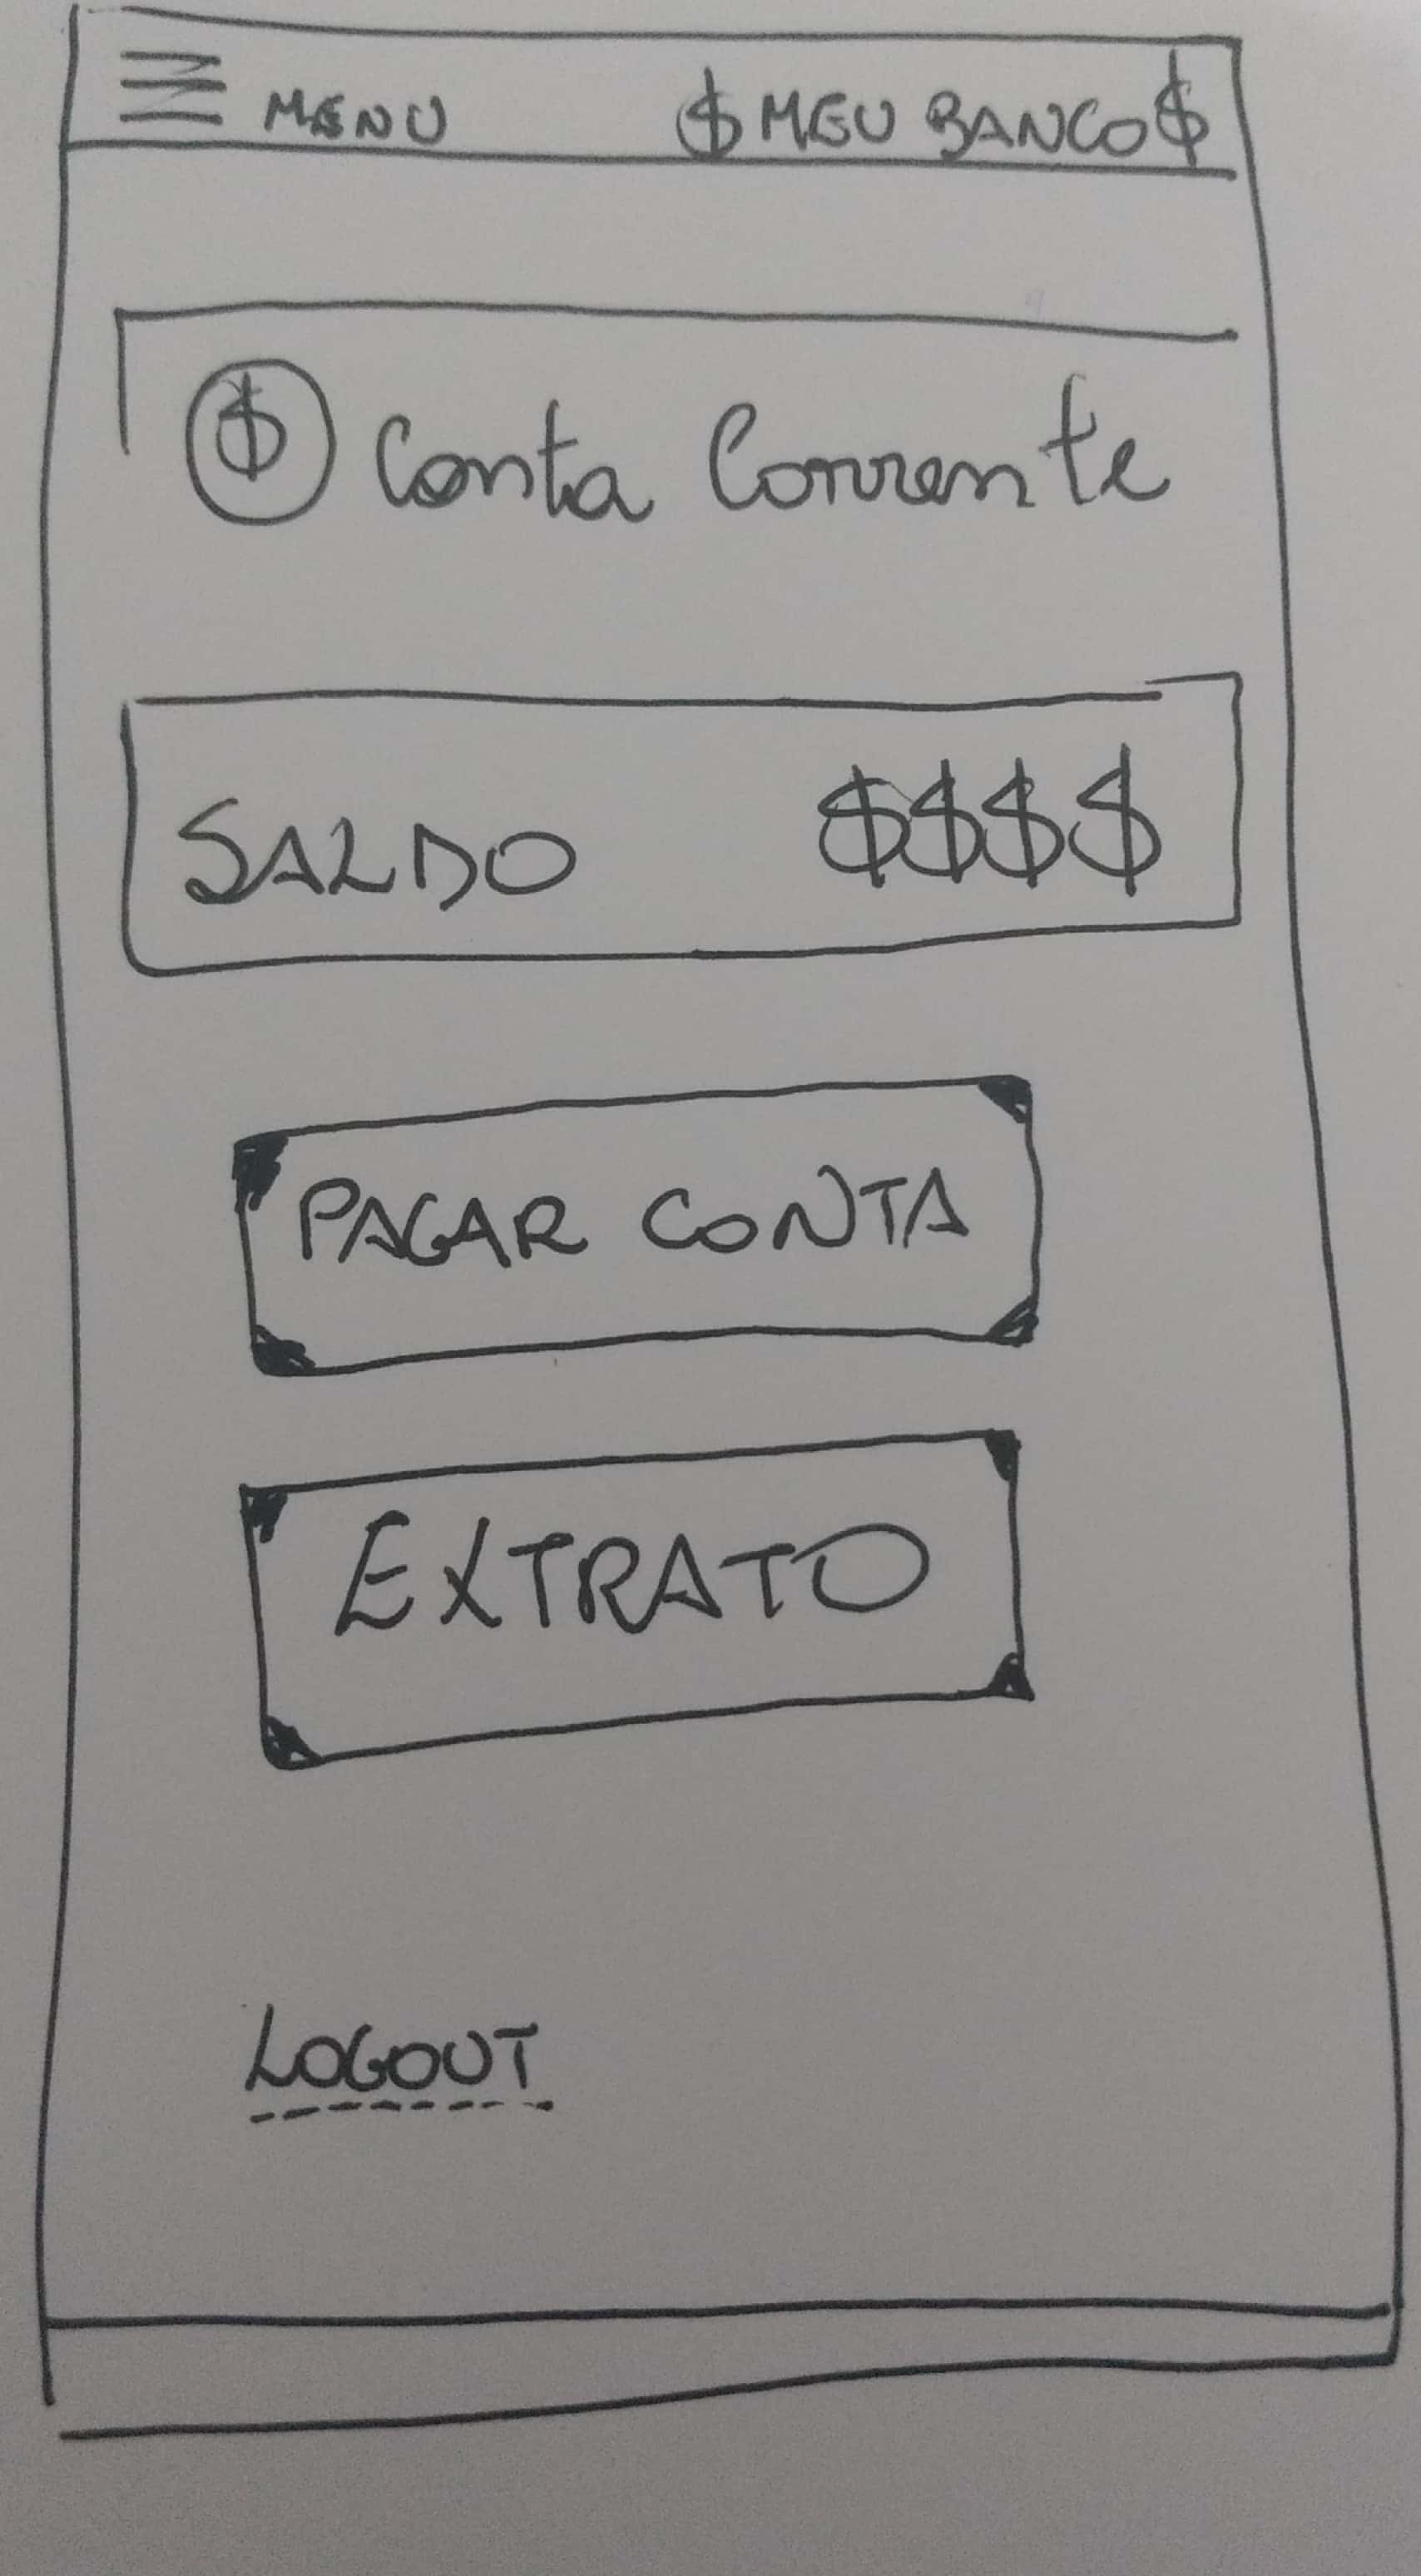 MENU $ MEU BANCO $
$ Conta Corrente
SALDO $$$$
PAGAR CONTA
EXTRATO
LOGOUT